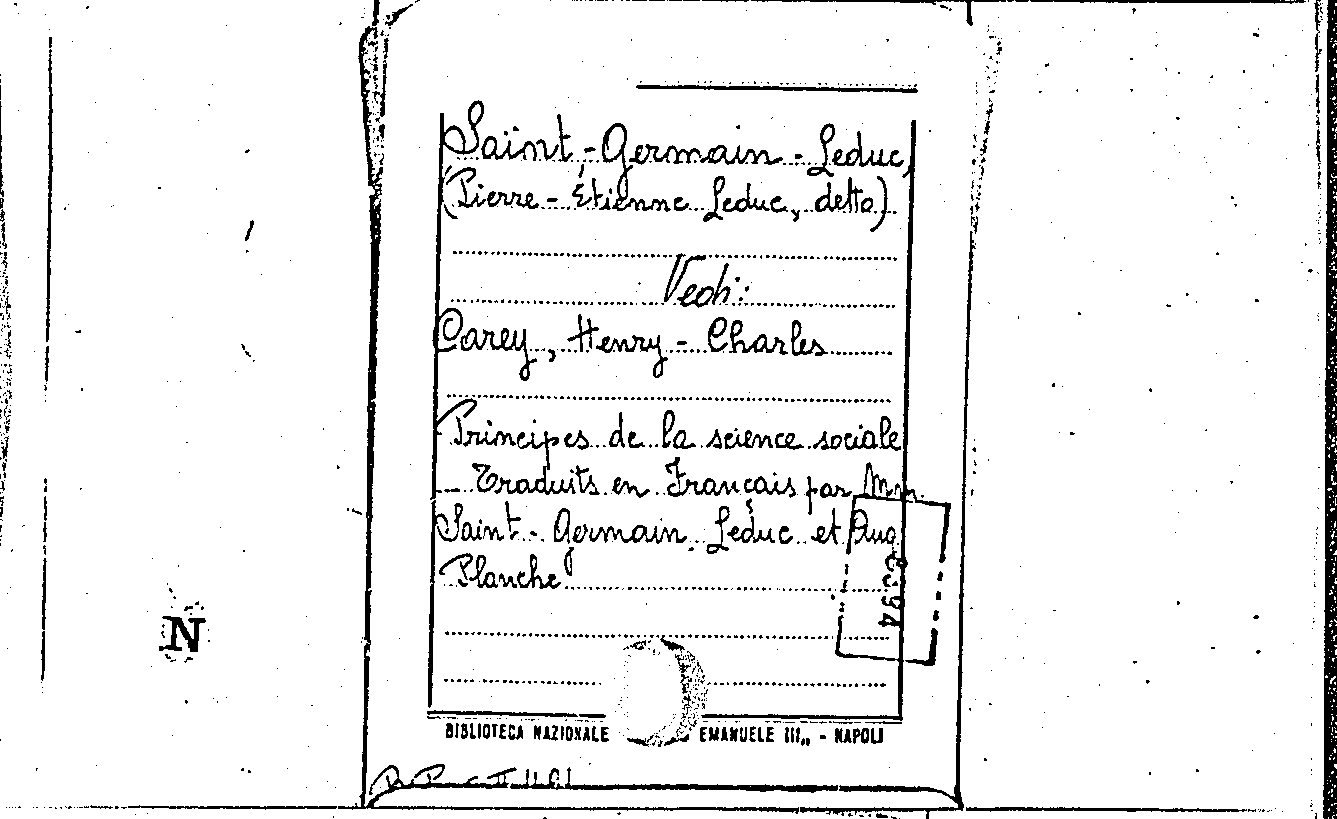 Saint-Germain-Leduc,
(Pierre-Étienne Leduc, detto)
Vedi:
Carey, Henry-Charles
Principes de la science sociale
_ Traduits en Français par Mm.
Saint-Germain Leduc et Aug
Planche
94
N
BIBLIOTECA NAZIONALE EMANUELE III„ - NAPOLI